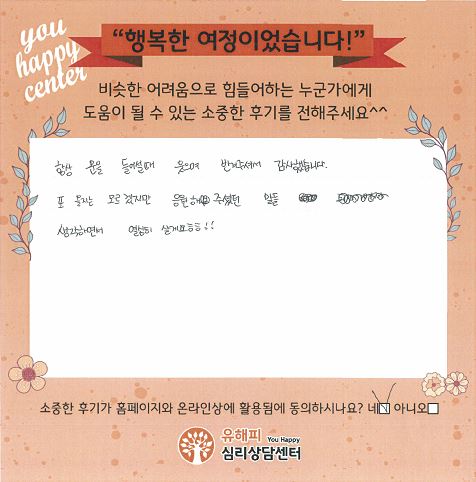 you
happy
center
“행복한 여정이었습니다!”
비슷한 어려움으로 힘들어하는 누군가에게
도움이 될 수 있는 소중한 후기를 전해주세요^^
항상 문을 들어설때 웃으며 반겨주셔서 감사했습니다.
또 올지는 모르겠지만 응원해 주셨던 일들
생각하면서 열심히 살게요!!
소중한 후기가 홈페이지와 온라인상에 활용됨에 동의하시나요? 네 아니오
유해피 You Happy
심리상담센터